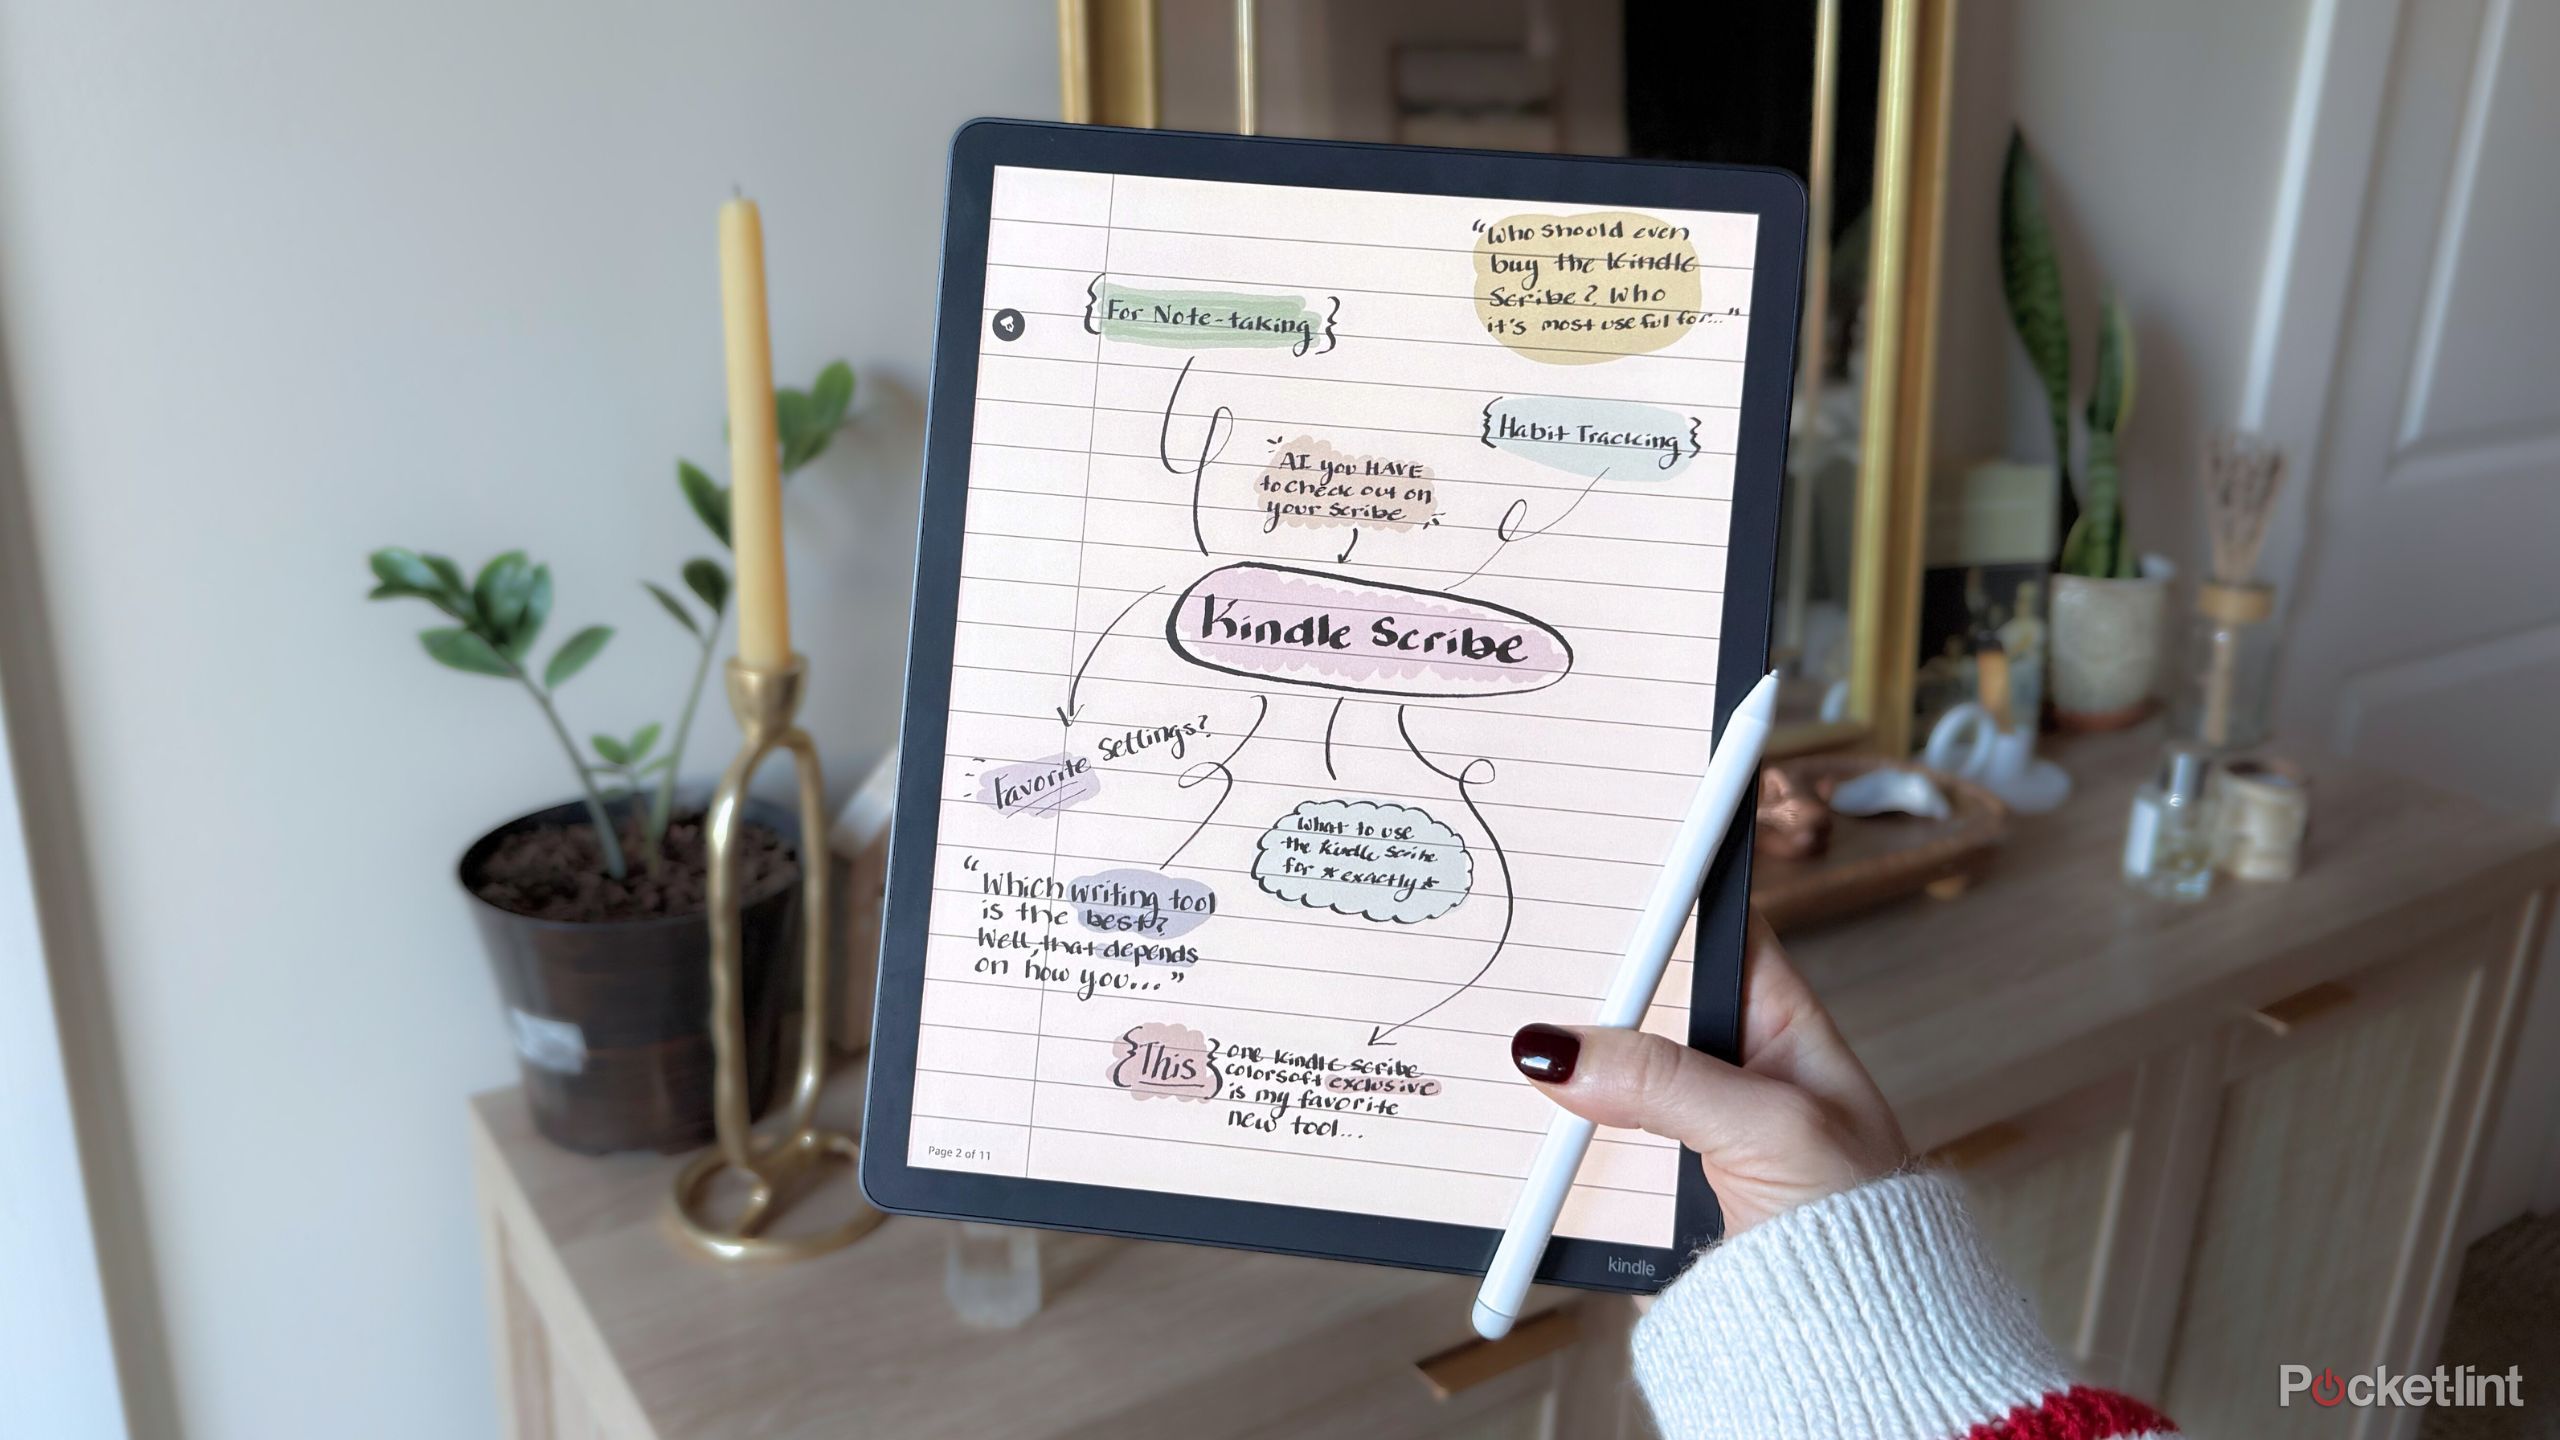 "Who should even
buy the Kindle
Scribe? Who
it's most useful for..."
{For Note-taking}
{Habit Tracking}
AI you HAVE
to check out on
your Scribe
Kindle Scribe
Favorite settings?
What to use
the Kindle Scribe
for *exactly*
"Which writing tool
is the best?
Well, that depends
on how you..."
{This} one Kindle Scribe
colorsoft exclusive
is my favorite
new tool...
Page 2 of 11
kindle
Pocket-lint